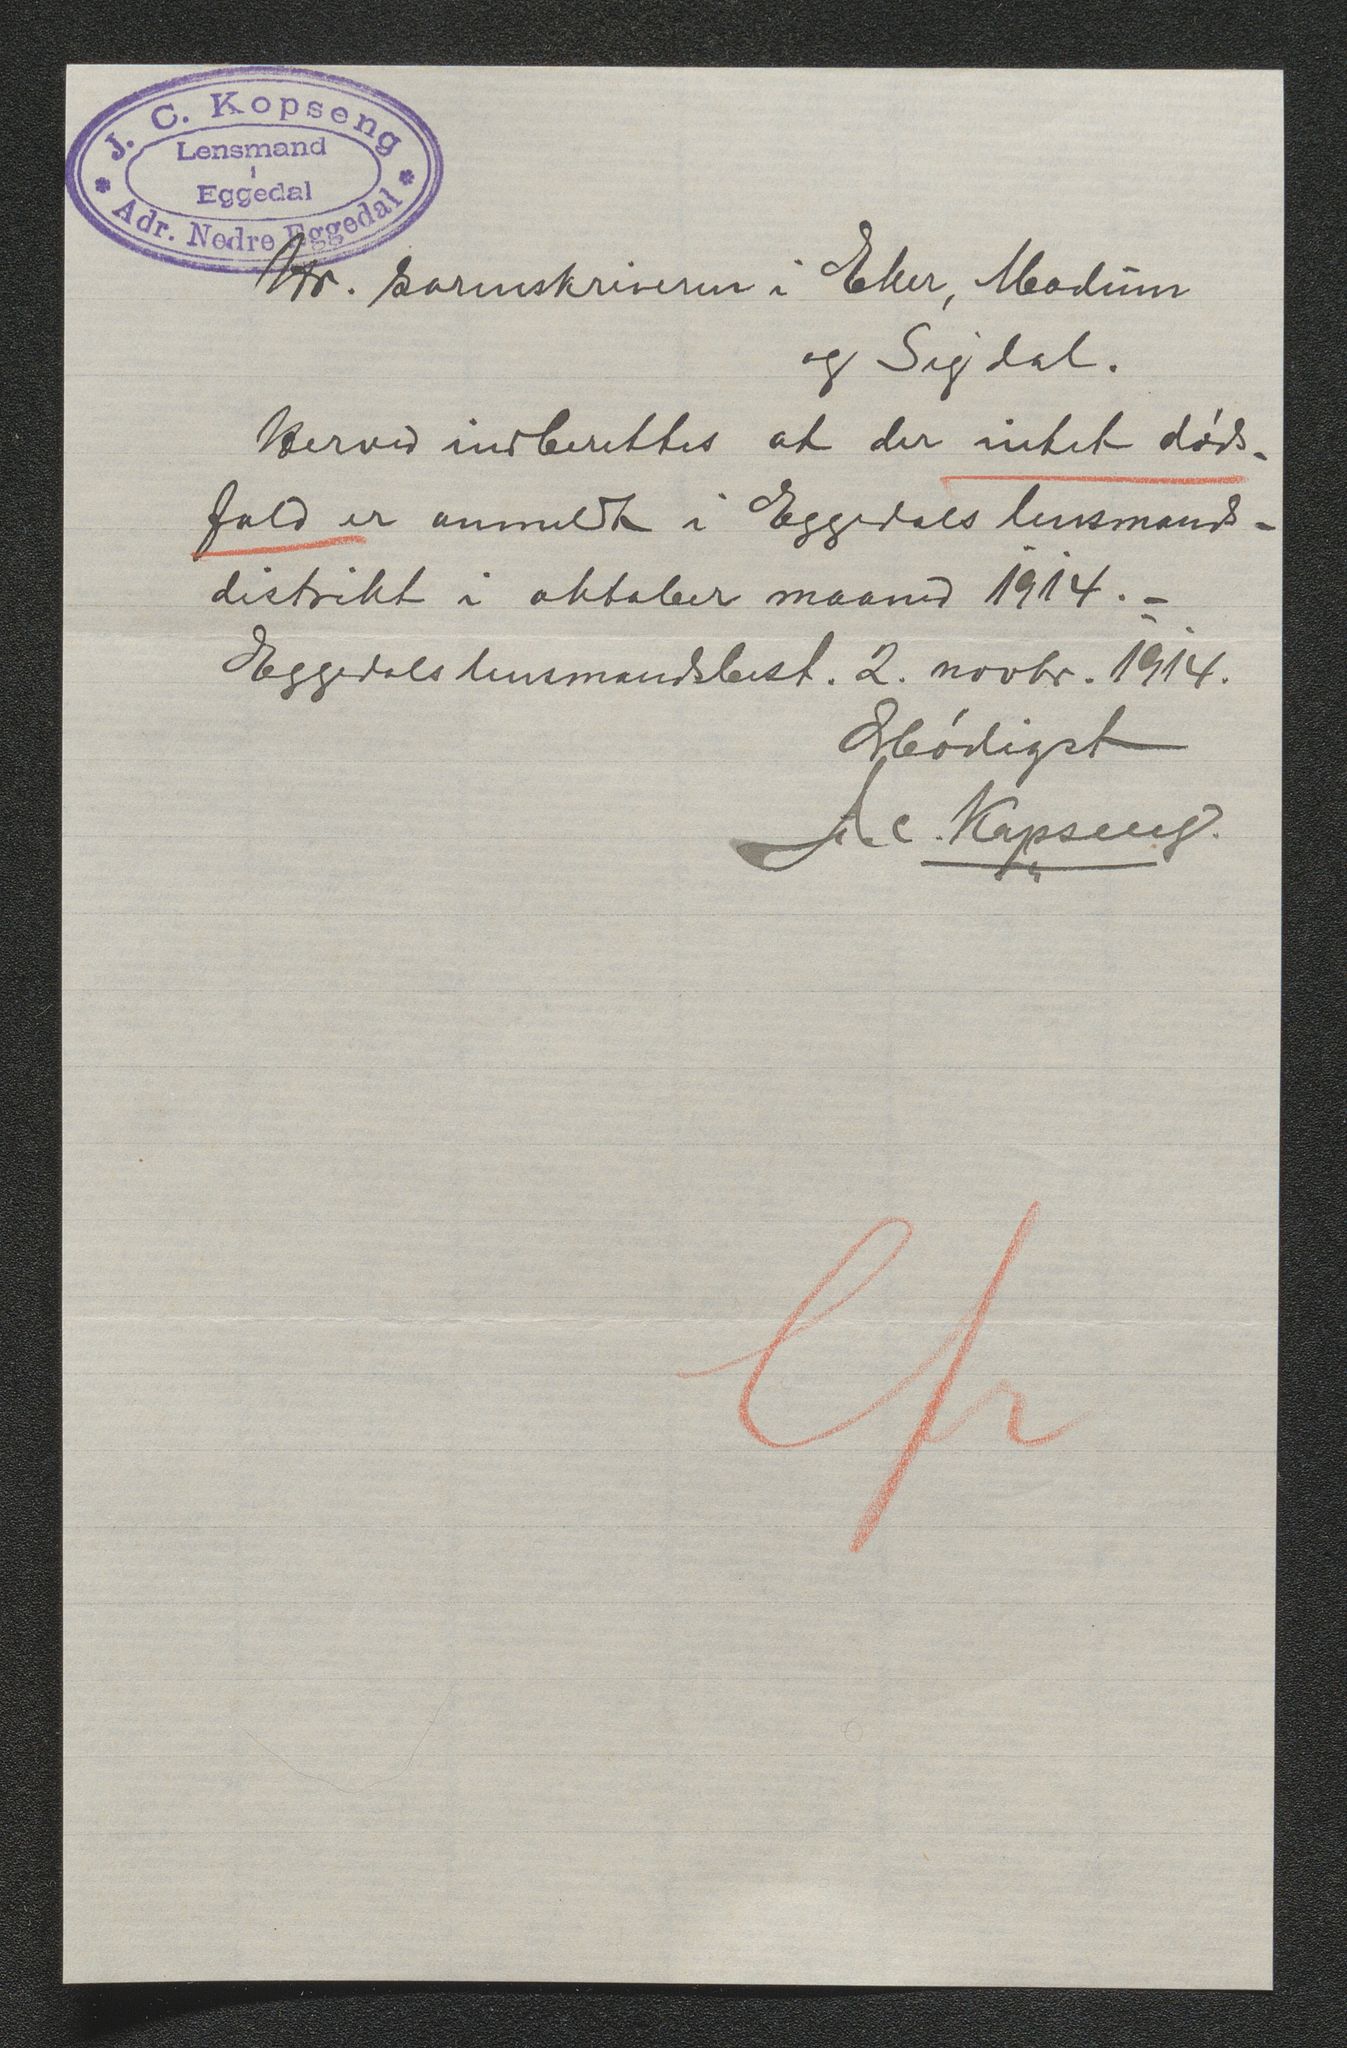 J. C. Kopseng
Lensmand
i
Eggedal
Adr. Nedre Eggedal
Hr. sorenskriveren i Eker, Modum
og Sigdal.
Herved indberettes at der intet døds-
fald er anmeldt i Eggedals lensmands-
distrikt i oktober maaned 1914. -
Eggedals lensmandsbest. 2. novbr. 1914.
Ærbødigst
J. C. Kopseng.